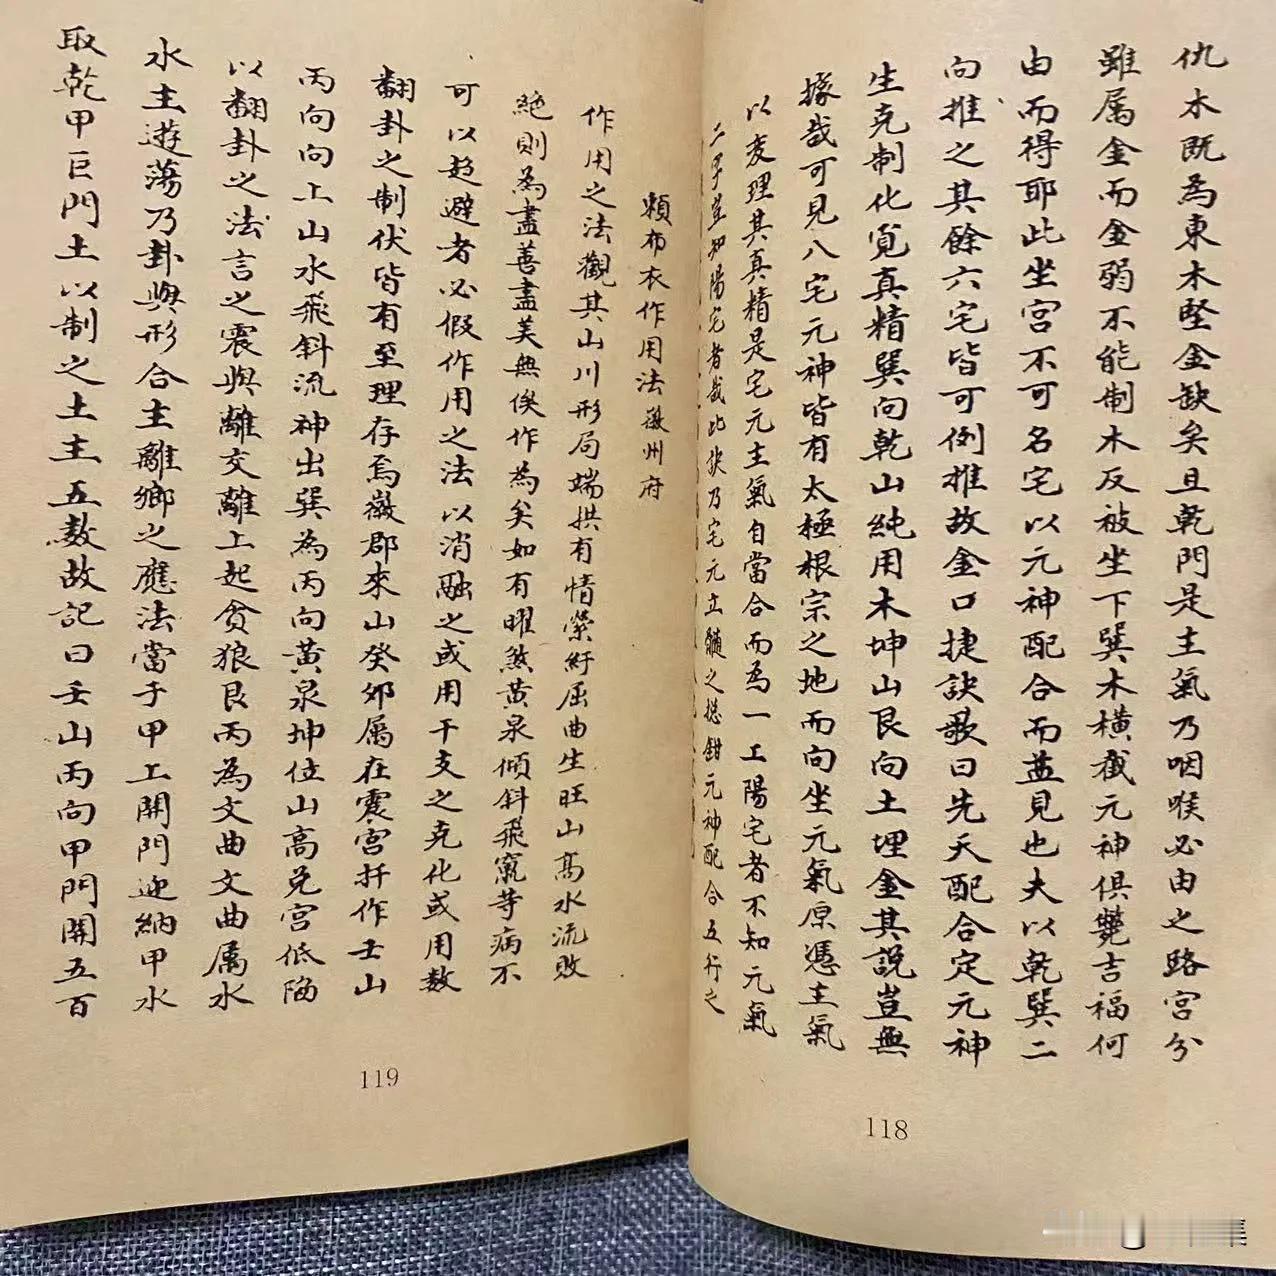 仇木既為東木堅金缺矣且乾門是主氣乃咽喉必由之路宮分
雖属金而金弱不能制木反被坐下巽木橫截元神俱斃吉福何
由而得耶此坐宮不可名宅以元神配合而益見也夫以乾巽二
向推之其餘六宅皆可例推故金口捷訣歌曰先天配合定元神
生克制化覓真精巽向乾山純用木坤山艮向土埋金其説豈無
據哉可見八宅元神皆有太極根宗之地而向坐元氣原憑主氣
以变理其真精是宅元主氣自當合而為一工陽宅者不知元氣
二字豈知陽宅者哉此訣乃宅元立髓之捴鉗元神配合五行之
118
賴布衣作用法徽州府
作用之法觀其山川形局端拱有情縈紆屈曲生旺山高水流敗
絶則為盡善盡美無俟作為矣如有曜煞黃泉傾斜飛竄等病不
可以趋避者必假作用之法以消融之或用干支之克化或用数
翻卦之制伏皆有至理存焉徽郡來山癸卯属在震宮扦作壬山
丙向向上山水飛斜流神出巽為丙向黃泉坤位山高兑宮低陷
以翻卦之法言之震與離交離上起貪狼艮丙為文曲文曲属水
水主遊蕩乃卦與形合主離鄉之應法當于甲上開門迎納甲水
取乾甲巨門土以制之土主五数故記曰壬山丙向甲門開五百
119